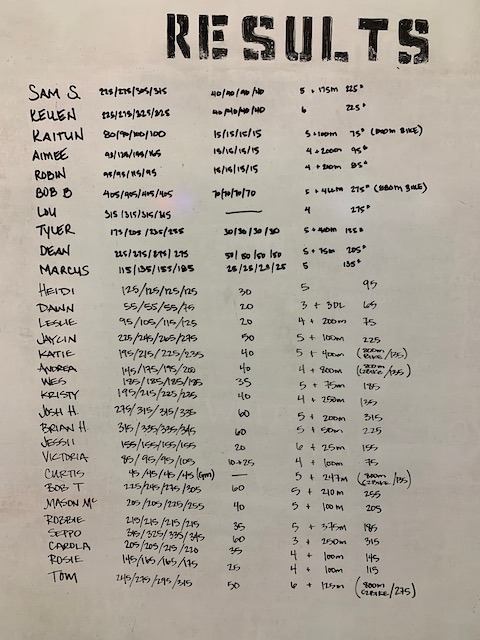 RESULTS
SAM S. 225/275/305/315 40/40/40/40 5 + 175m 225#
KELLEN 225/275/325/325 40/40/40/40 6 225#
KAITLIN 80/90/100/100 15/15/15/15 5 + 100m 75# (800m BIKE)
AIMEE 15/15/15/15 4 + 200m 95#
ROBIN 95/95/115/95 15/15/15/15 4 + 85#
BOB B 405/405/405/405 70/70/70/70 5 + 275# (800M BIKE)
LOU 315/315/315/315 — 4 275#
TYLER 175/205/235/255 30/30/30/30 5 + 135#
DEAN 225/275/275/275 50/50/50/50 5 + 75m 205#
MARCUS 115/135/155/185 25/25/25/25 5 135#
HEIDI 125/125/125/125 30 5 95
DAWN 55/55/55/75 20 3 + 65
LESLIE 95/105/115/125 20 4 + 200m 75
JAYLIN 225/245/265/275 50 5 + 100m 225
KATIE 195/215/225/235 40 5 + 400m (800m BIKE/135)
ANDREA 145/175/195/200 40 4 + 800m (800m C2BIKE/85)
WES 185/185/185/185 35 5 + 75m 185
KRISTY 195/215/225/225 40 4 + 250m 135
JOSH H. 275/315/315/335 60 5 + 200m 315
BRIAN H. 315/335/335/345 60 5 + 50m 225
JESSII 155/155/155/155 20 6 + 25m 155
VICTORIA 85/95/95/105 10+25 4 + 100m 75
CURTIS 45/45/45/45 — 5 + 247m (800m C2BIKE/135)
BOB T 225/245/275/305 60 5 + 210m 255
MASON Mc 205/205/225/255 40 5 + 100m 205
ROBBIE 215/215/215/215 35 5 + 375m 185
SEPPO 315/325/335/345 60 3 + 250m 315
CAROLA 205/205/215/220 35 4 + 100m 145
ROSIE 145/165/165/175 25 4 + 100m 115
TOM 245/275/295/315 50 6 + 125m (800m C2BIKE/275)